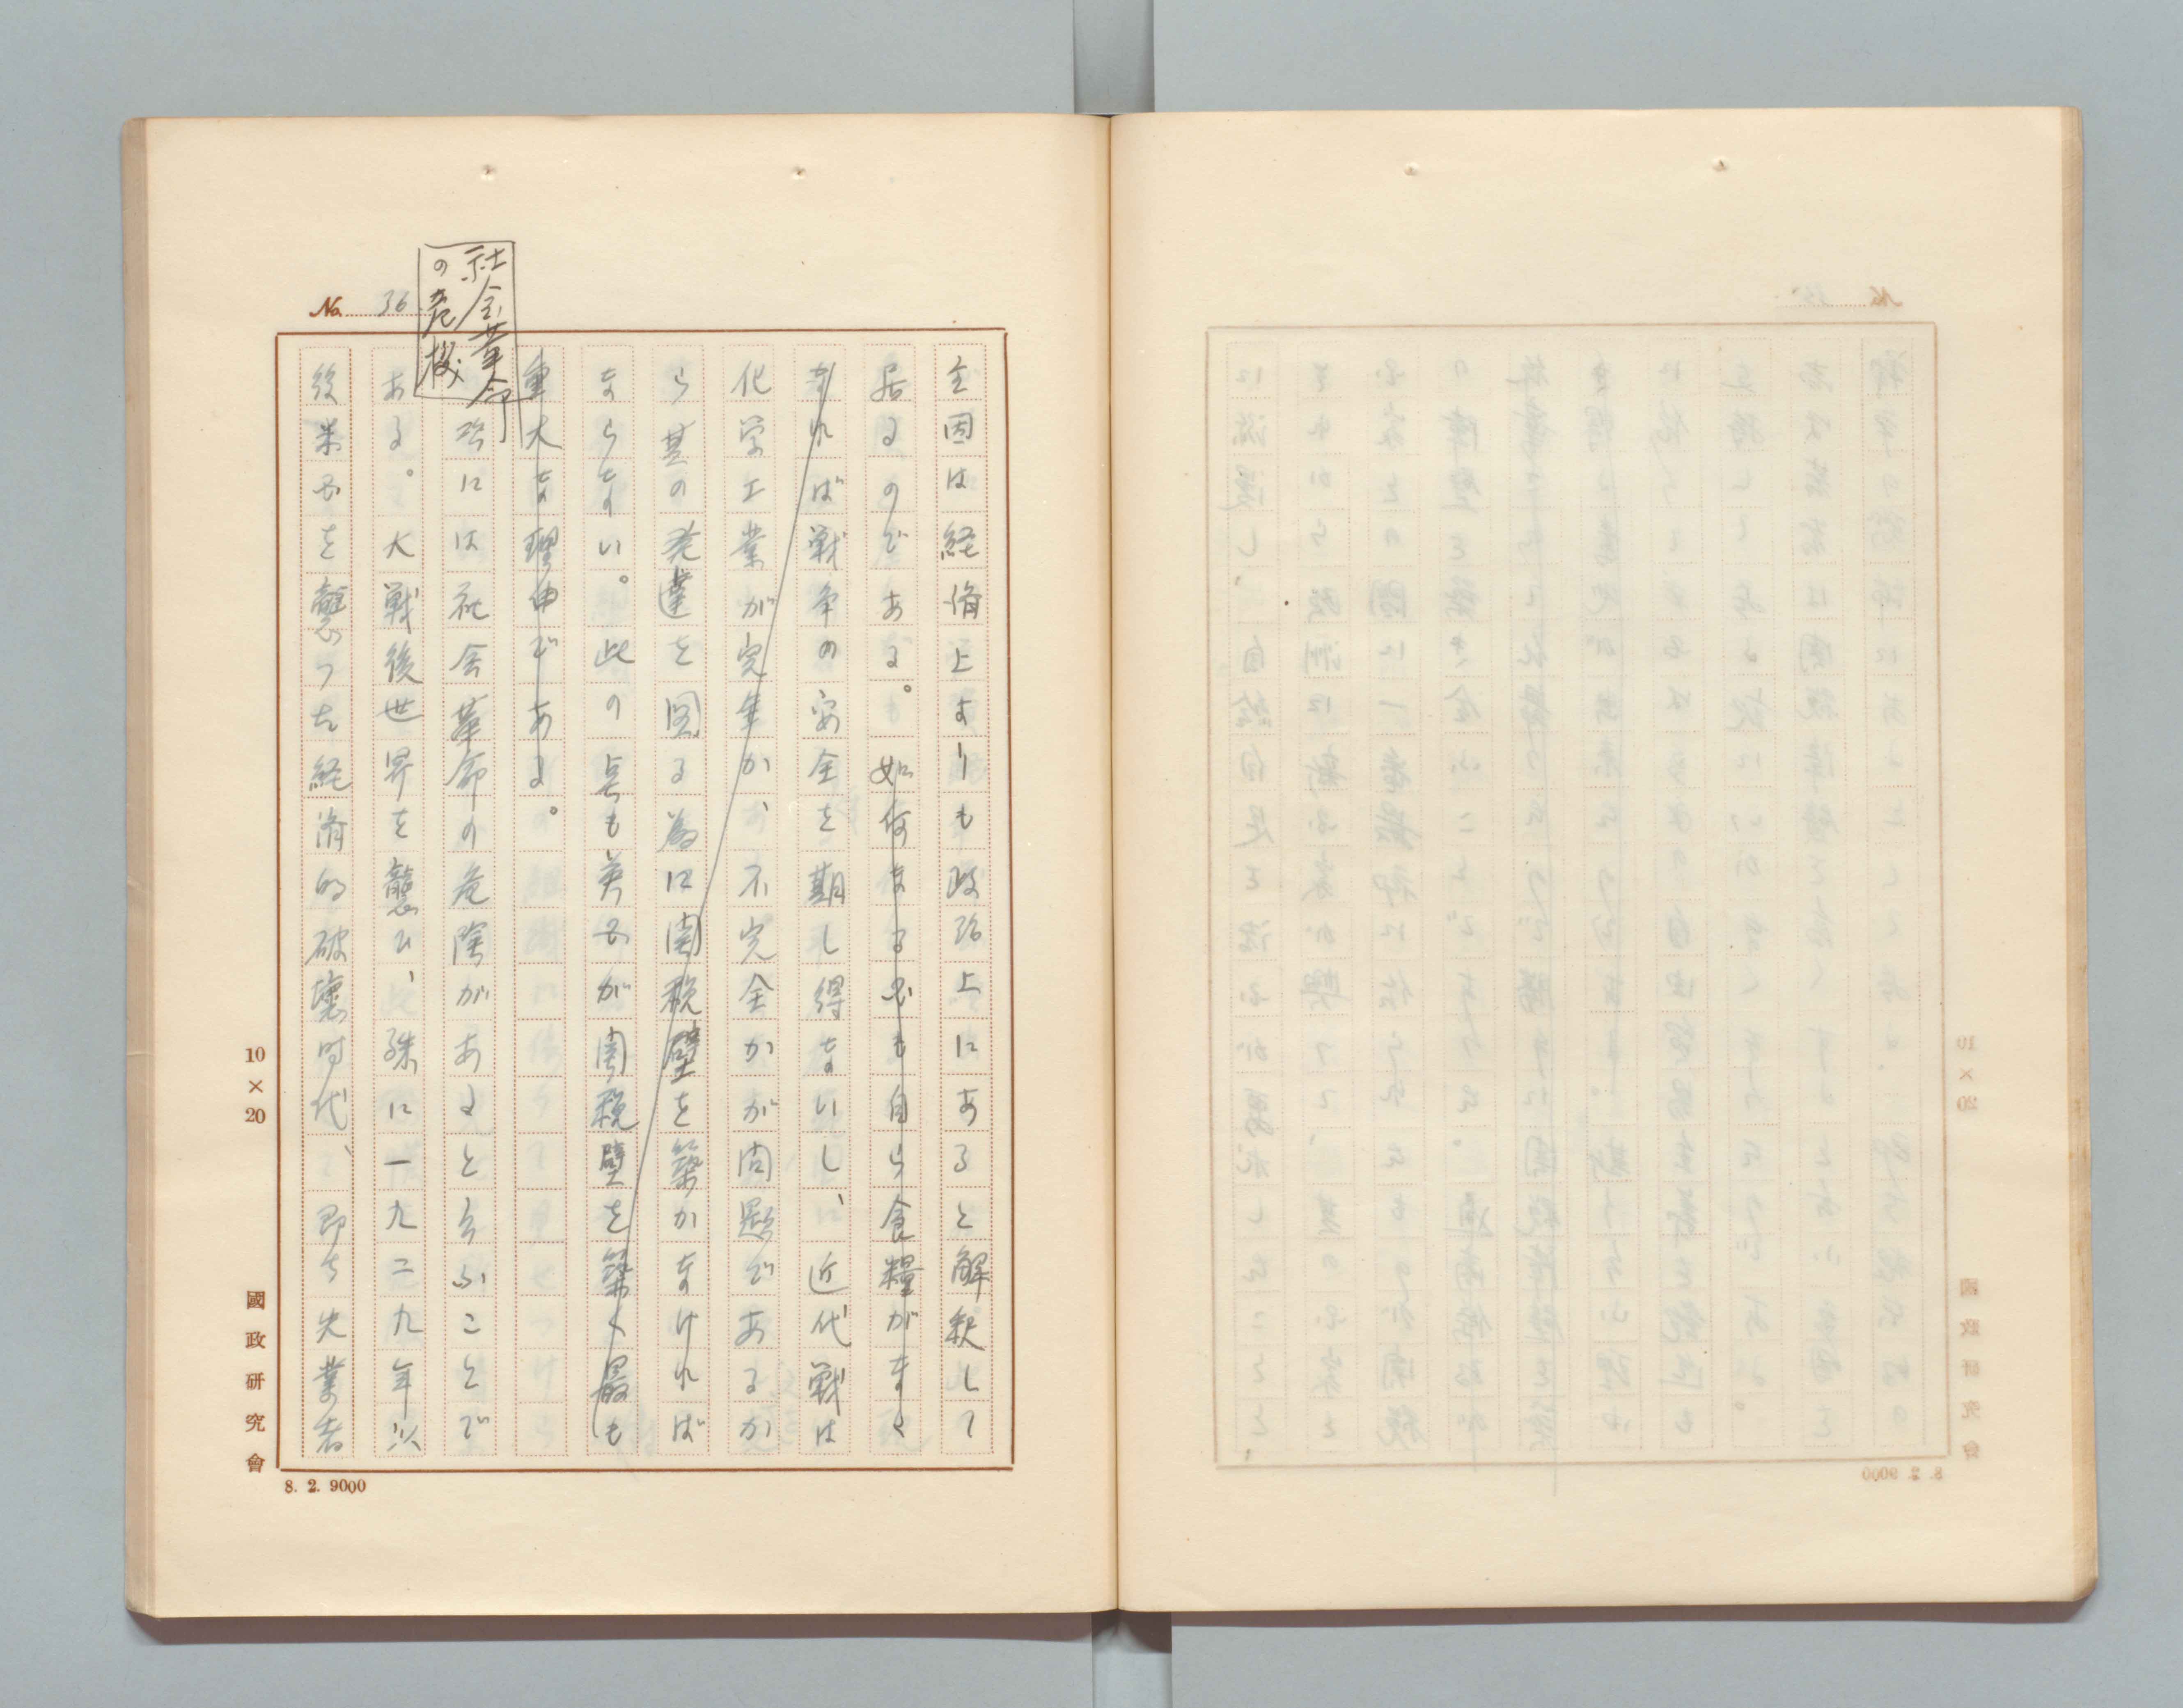 No. 36
社会革命
の危機
主因は経済上よりも政治上にあると解釈して
居るのである。如何なる国も自ら食糧がなく
なれば戦争の安全を期し得ないし、近代戦は
化学工業が完隼か、不完全かが問題であるか
ら其の発達を図る為に関税壁を築かなければ
ならない。此の点も英国が関税壁を築く最も
重大な理由である。
には社会革命の危険があると云ふことで
ある。大戦後世界を襲ひ、殊に一九二九年以
後米国を襲つた経済的破壊時代、即ち失業者
10×20
國政研究會
8. 2. 9000